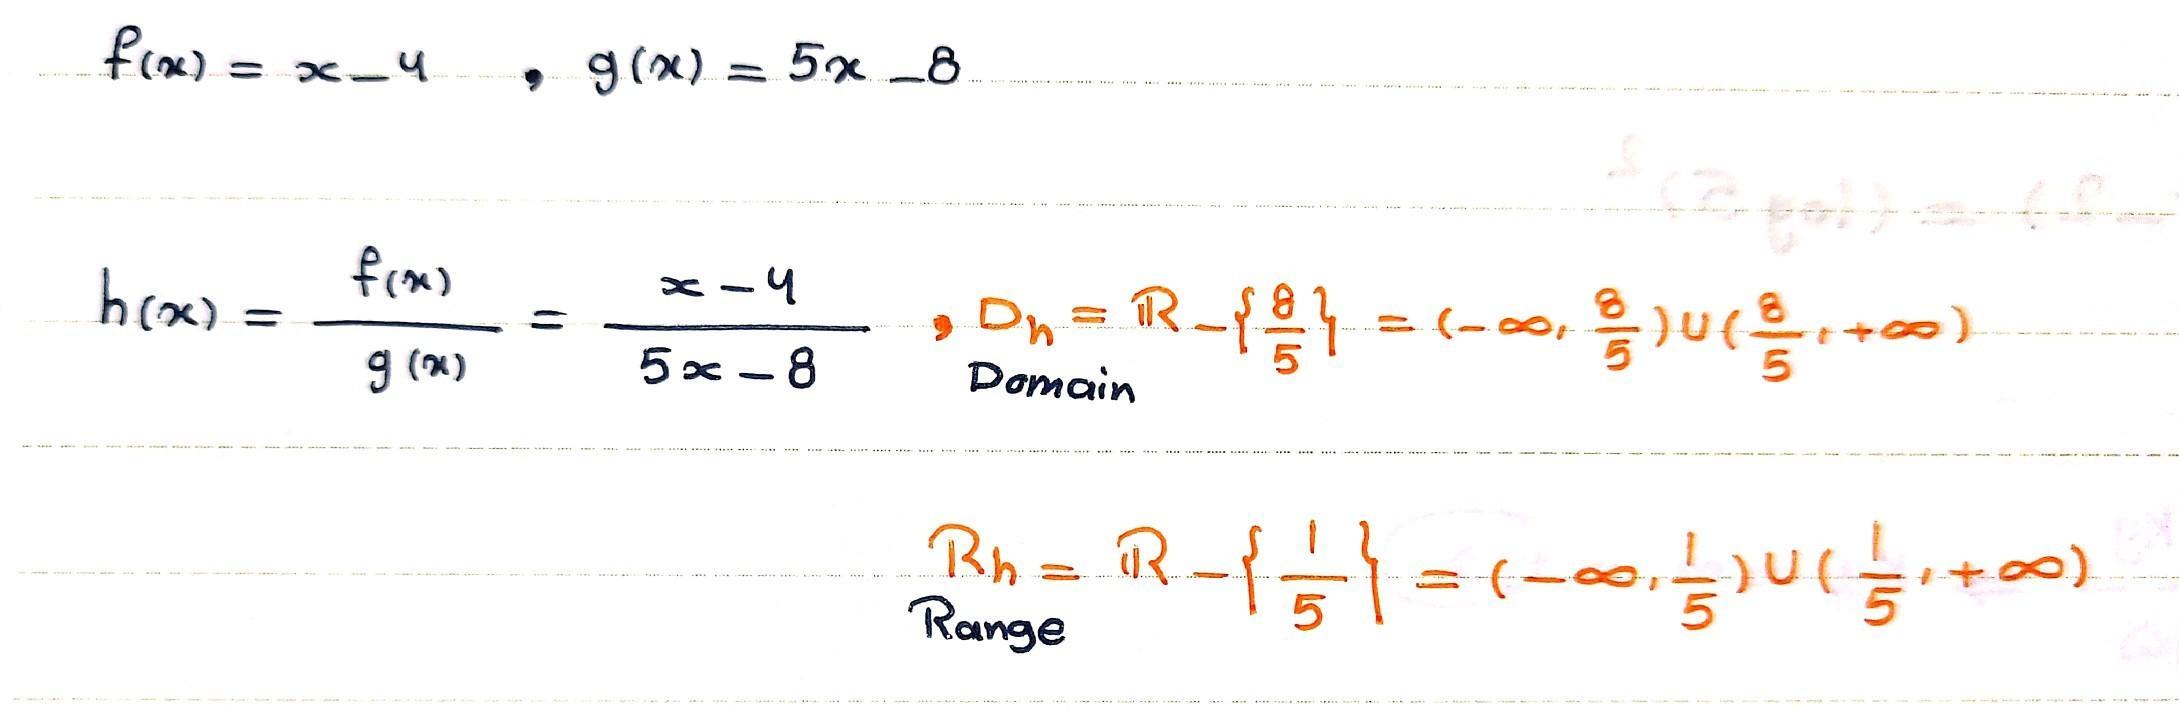 f(x) = x - 4 , g(x) = 5x - 8
h(x) = f(x) / g(x) = x - 4 / 5x - 8 , Dh = ℝ - {8/5} = (-∞, 8/5) ∪ (8/5, +∞)
Domain
Rh = ℝ - {1/5} = (-∞, 1/5) ∪ (1/5, +∞)
Range